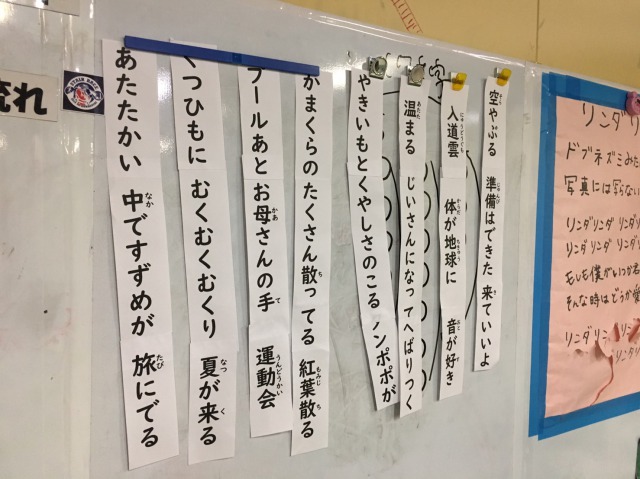 リンダリ
ドブネズミみた
写真には写らない
リンダリンダ リンダリ
リンダリンダ リンダリ
もしも僕がいつか君
そんな時はどうか愛
リンダリ
空やぶる 準備はできた 来ていいよ
入道雲 体が地球に 音が好き
温まる じいさんになってへばりつく
やきいもとくやしさのこる ンポポが
かまくらのたくさん散ってる 紅葉散る
プールあとお母さんの手 運動会
くつひもに むくむくむくり 夏が来る
あたたかい 中ですずめが 旅にでる
流れ